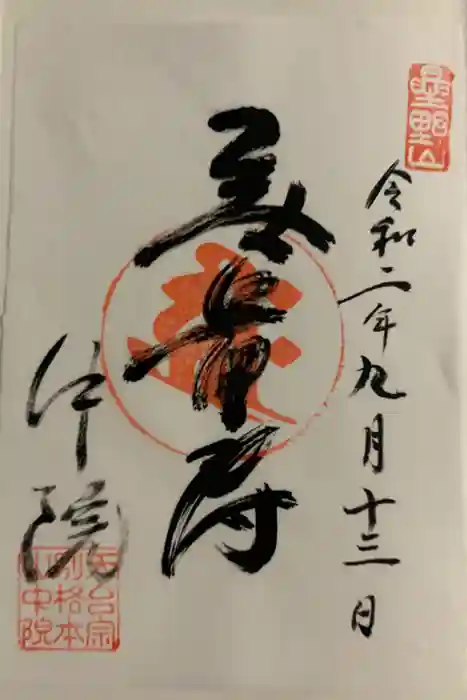 星野山
令和二年九月十三日
無量寿
中院
天台宗
別格本
山中院